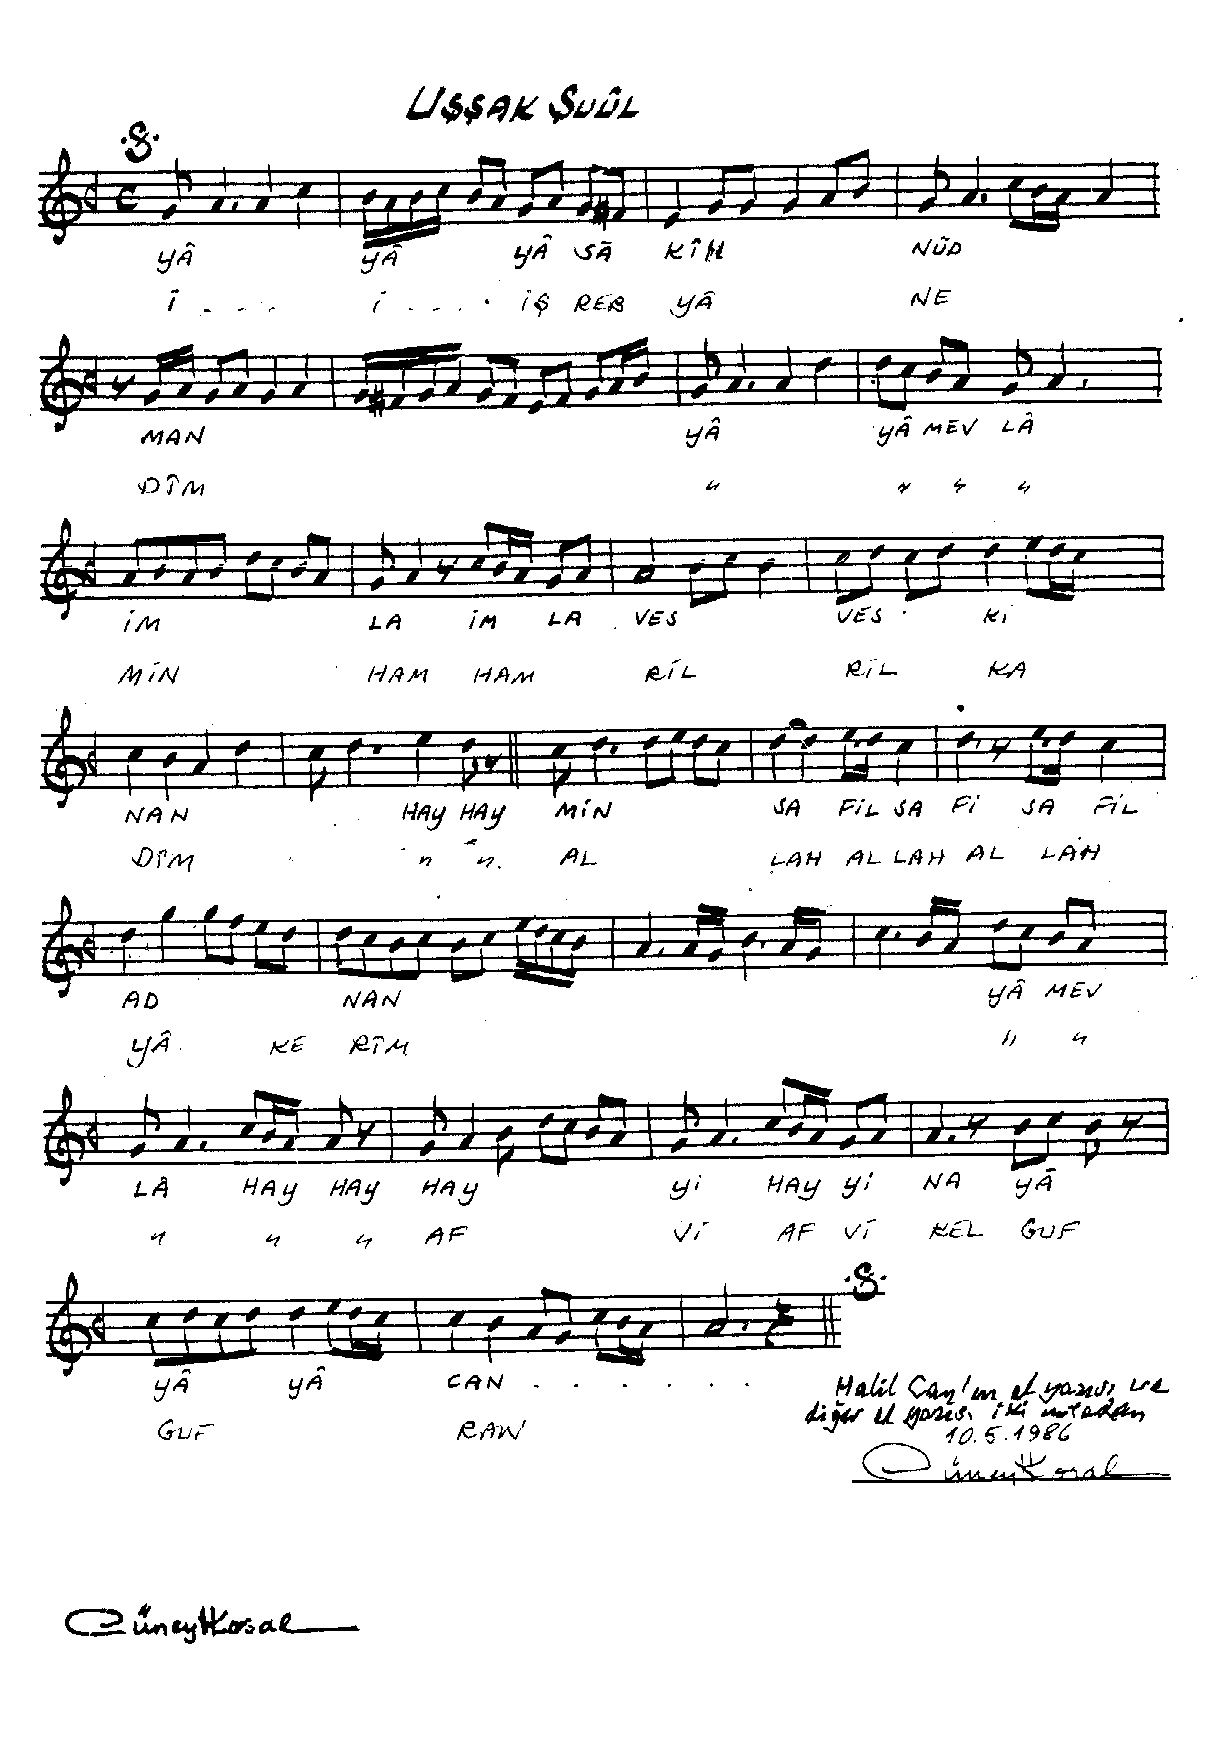 UŞŞAK ŞUÛL
YÂ YÂ YÂ SÂ KÎN NÛD
İ . . . . İ . . . . İŞ REB YÂ NE
MAN YÂ YÂ MEV LÂ
DÎM " " " "
İM LA İM LA VES VES Kİ
MİN HAM HAM RİL RİL KA
NAN HAY HAY MİN SA FİL SA Fİ SA FİL
DÎM " " AL LAH AL LAH AL LAH
AD NAN YÂ MEV
YÂ KE RÎM " "
LÂ HAY HAY HAY Yİ HAY Yİ NA YÂ
" " " AF Vİ AF Vİ KEL GUF
YÂ YÂ CAN . . . . . .
GUF RAN
Halil Can'ın el yazısı ve
diğer el yazısı iki notadan
10.5.1986
Cüneyt Kosal
Cüneyt Kosal